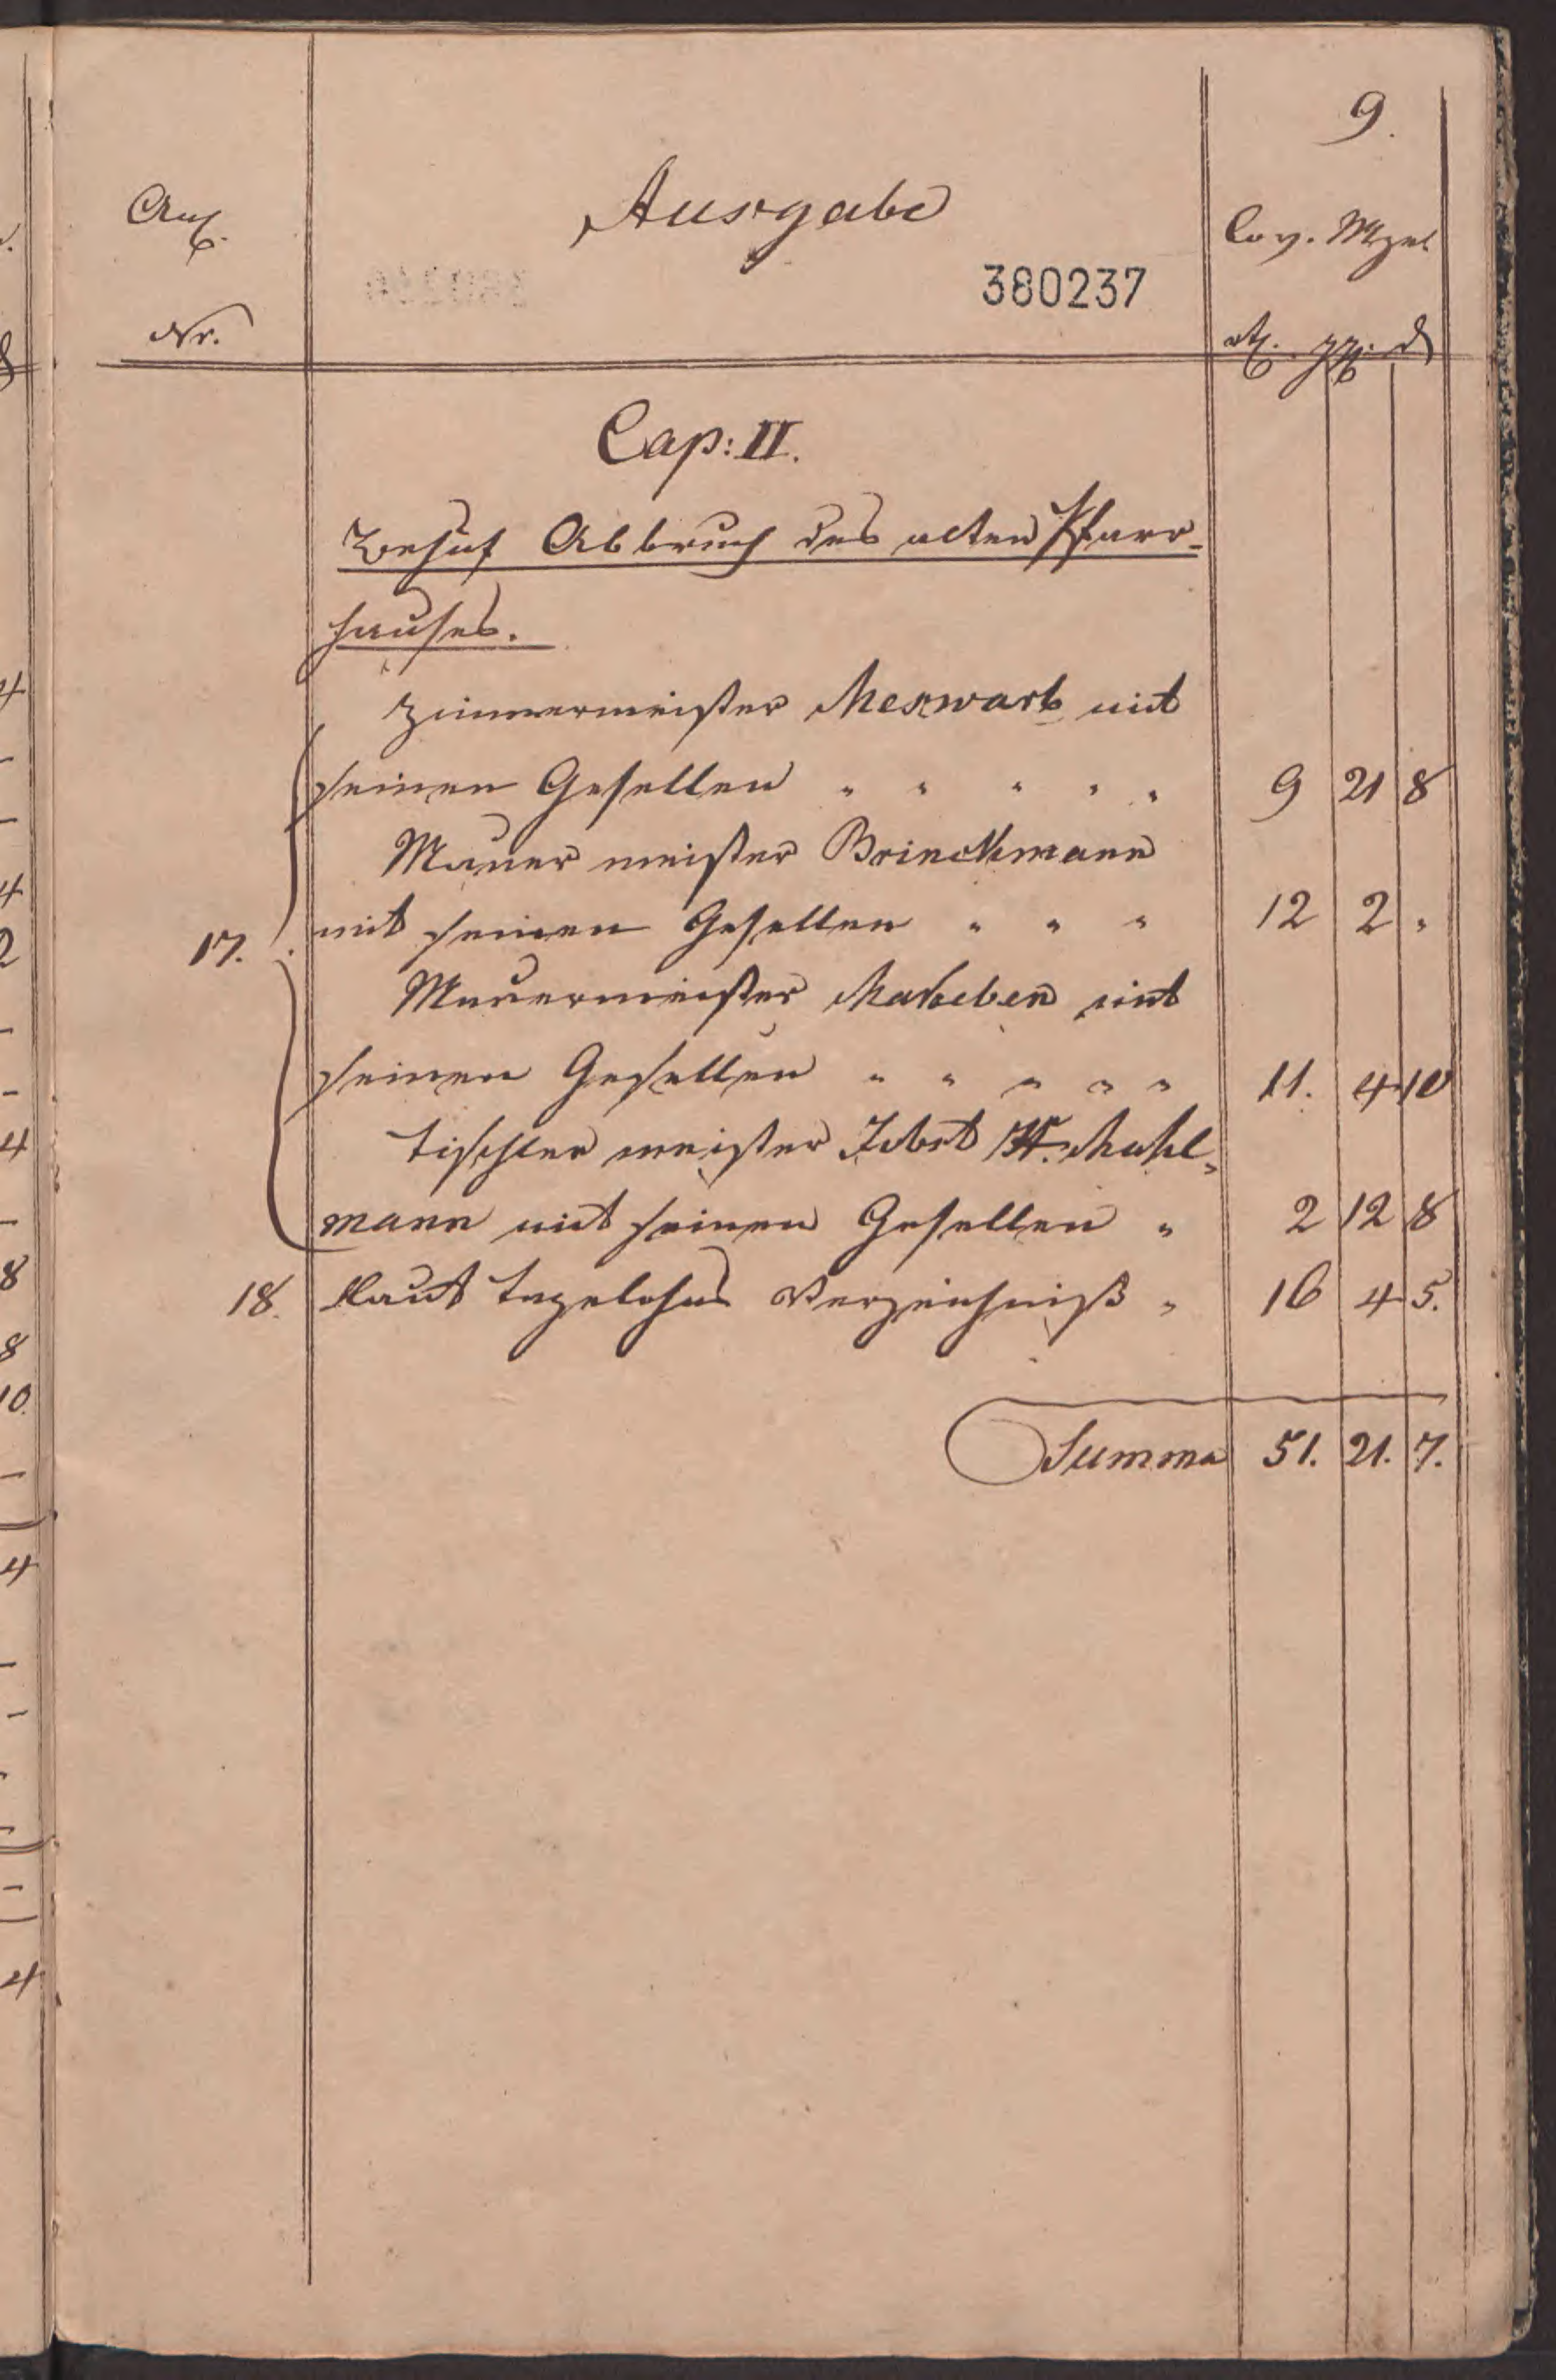 9.
Anl. Ausgabe Cov. Mze
380237
Nr. rt. ggr. d
Cap: II.
Behuf Abbruch des alten Pfarr-
hauses.
Zimmermeister Mexwarb mit
seinen Gesellen " " " " " 9 21 8
Mauer meister Brinckmann
17. mit seinen Gesellen " " " 12 2 "
Mauermeister mit
seinen Gesellen " " " " " 11. 4 10
Tischler meister Jobst W. Mahl-
mann mit seinen Gesellen " 2 12 8
18. Laut Tagelohns Verzeichniß " 16 4 5.
Summa 51. 21. 7.